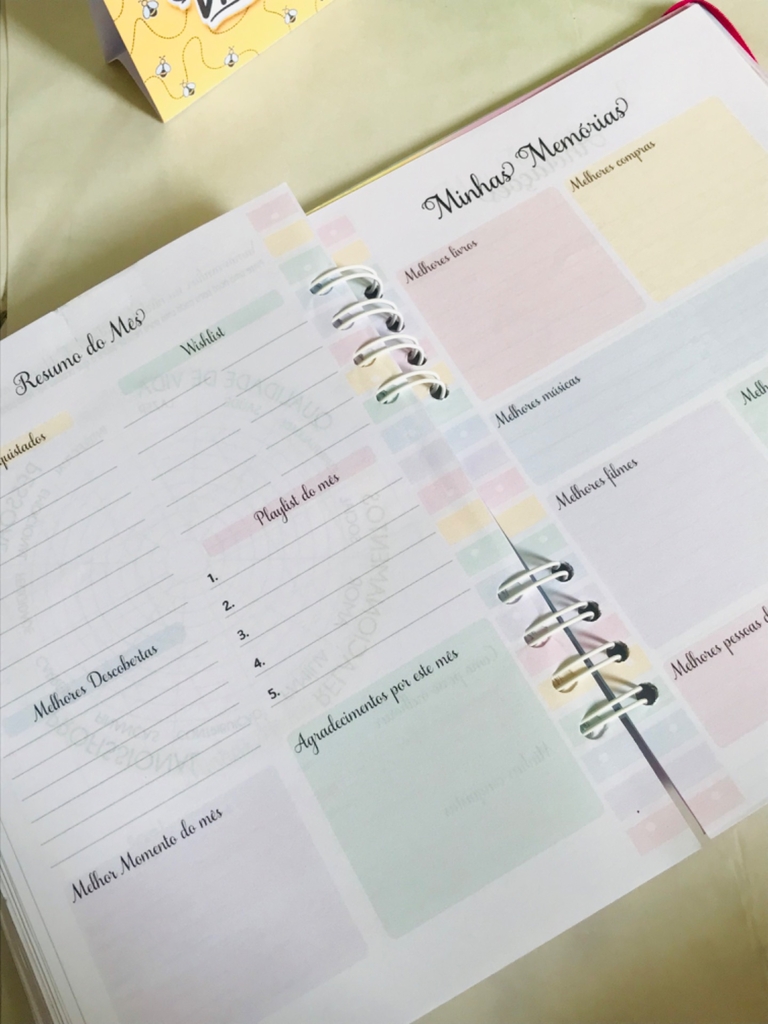 Resumo do Mês
Wishlist
quistados
Playlist do mês
1.
2.
3.
4.
5.
Melhores Descobertas
Agradecimentos por este mês
Melhor Momento do mês
Minhas Memórias
Melhores livros
Melhores compras
Melhores músicas
Melh
Melhores filmes
Melhores pessoas d
QUALIDADE DE VIDA
RELACIONAMENTOS
PROFISSIONAL
PESSOAL